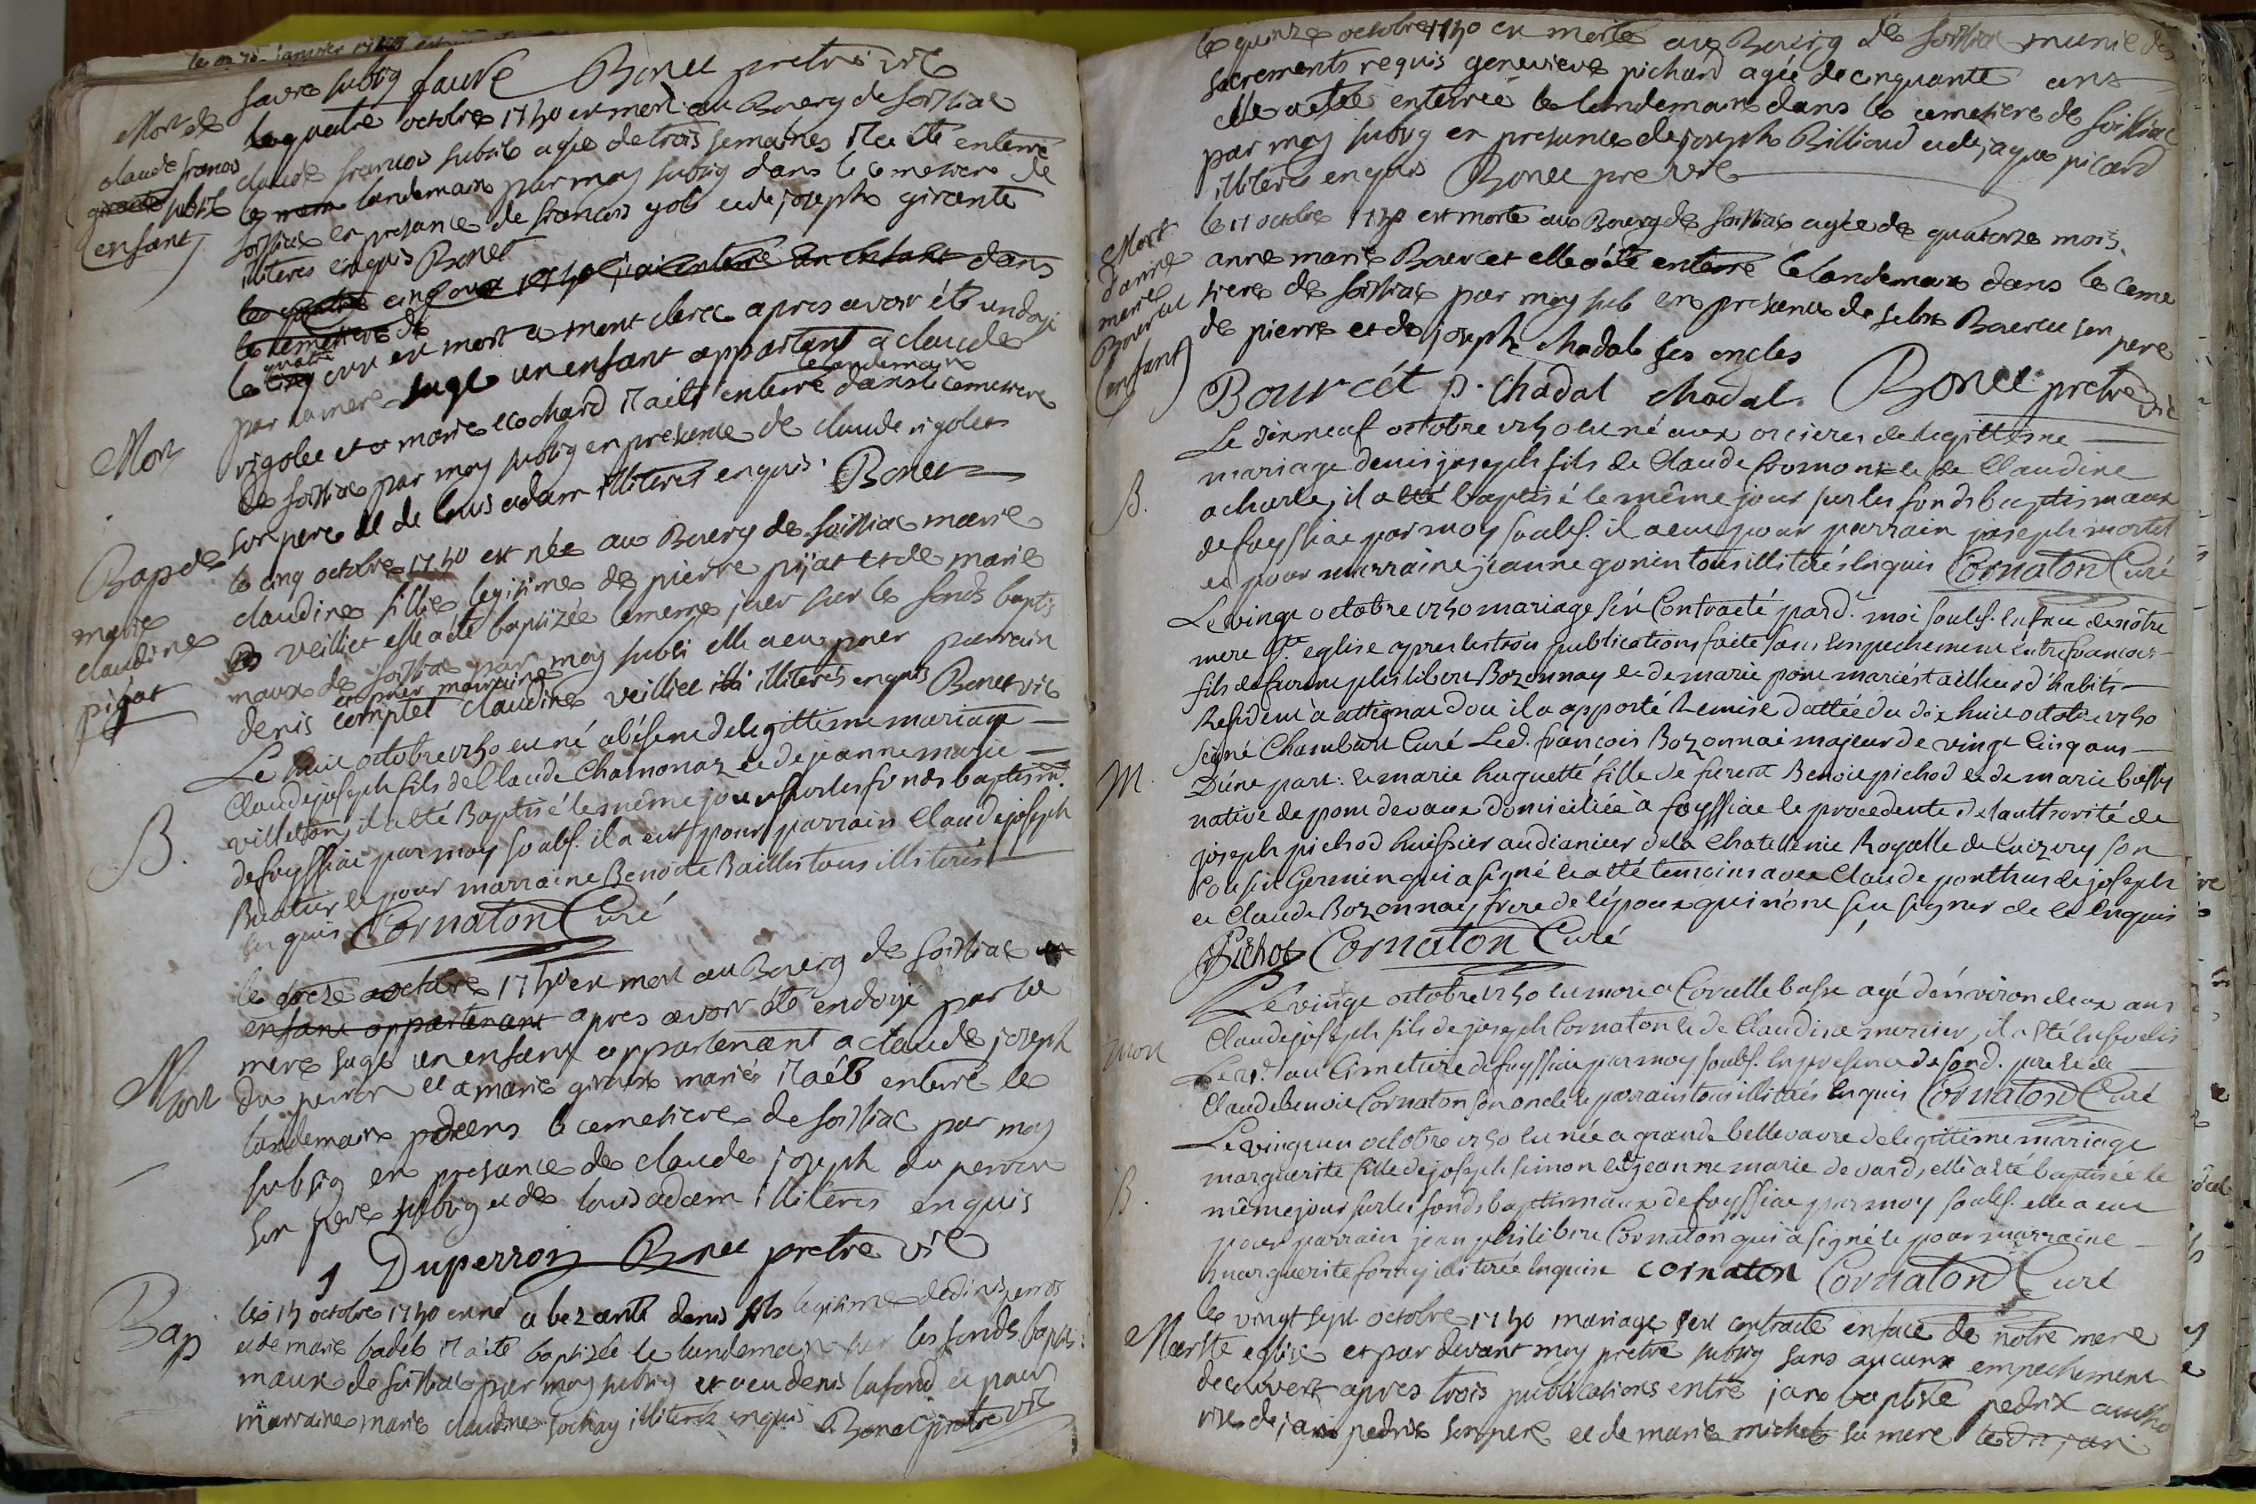 favre subsig faure Bonet pretre vic
Mort de
claude francois
subtil
(enfant)
le quatre octobre 1750 est mort au Bourg de foissiac
claude francois subtil agé de trois semaines il a été enterré
le landemain par moy subsig dans le cemetiere de
foissiac en presance de francois gob et de joseph girante
illiteres enquis Bonet
le cinq 1750 j'ai enterré un enfant dans
le cemetiere de
Mort
le quatre est mort a mont clerc apres avoir été endoyé
par la mere sage un enfant appartenant a claude
rigolet et a marie cochard il a été enterré le landemain dans le cemetiere
de foissiac par moy subsig en presence de claude rigolet
son pere et de louis adam illiterés enquis. Bonet
Bap de
marie
claudine
pijat
le cinq octobre 1750 est née au Bourg de foissiac marie
claudine fillie legitime de pierre pijat et de marie
veilliet elle a été baptizée le meme jour sur les fonds baptis
maux de foissiac par moy subsi elle a eu pour parrain
denis complet et pour marraine claudine veilliet illiterés enquis Bonet vic
B.
Le huit octobre 1750 est né a bésene de legittime mariage
Claude joseph fils de Claude Chamonaz et de jeanne marie
villeton, il a été Baptisé le même jour sur les fonds baptism.
de foyssiac par moy soubs. il a eut pour parrain Claude joseph
et pour marraine Benoite Baillis tous illiterés
enquis Cornaton Curé
Mort
le octobre 1750 est mort au Bourg de foissiac
enfant appartenant apres avoir été endoyé par la
mere sage un enfant appartenant a claude joseph
du perron et a marie mariés il a été enterré le
landemain dans le cemetiere de foissiac par moy
subsig en presance de claude joseph du perron
son pere subsig et de louis adam illiterés enquis
J Duperron Bonet pretre vic
Bap
le 15 octobre 1750 est né a bezante denis fils legitime de denis
et de marie badet il a été baptizée le landemain sur les fonds baptis:
maux de foissiac par moy subsig et a eu denis lafond et pour
marraine marie claudine fochay illiteres enquis Bonet pretre vic
le quinze octobre 1750 est morte au Bourg de foissiac munie des
sacrements requis genevieve pichard agée de cinquante ans
elle a été enterrée le landemain dans le cemetiere de foissiac
par moy subsig en presance de joseph Billiaud et de jaque picard
illiterés enquis Bonet pre vic
Mort
d'anne
marie
Bourcet
(enfant)
le 17 octobre 1750 est morte au Bourg de foissiac agée de quatorze mois
anne marie Bourcet elle a été enterré le landemain dans le ceme
tiere de foissiac par moy sub en presance de Bourcet son pere
de pierre et de joseph chadal ses oncles
Bourcét p. chadal chadal. Bonet pretre vic
B.
Le dixneuf octobre 1750 est né aux orcieres de legittime
mariage denis joseph fils de Claude et de Claudine
acharle, il a été baptisé le même jour sur les fonds baptismaux
de foyssiac par moy soubs. il a eu pour parrain joseph mortel
et pour marraine jeanne gonin tous illiterés enquis Cornaton Curé
M.
Le vingt octobre 1750 mariage s'est Contracté pard. moi soubs. en face de nôtre
mere Ste eglise apres les trois publications faite sans Empechement entre francois
fils de feu philibert Bozonnay et de marie pont mariés tailleur d'habits
Resident à attignat d'ou il a apporté Remise dattée du dix huit octobre 1750
signé Chambard Curé Led. francois Bozonnai majeur de vingt Cinq ans
D'une part: et marie huguette fille de furent Benoit pichod et de marie bussy
native de pont de vaux domiciliée à foyssiac et procedente de l'authorité de
joseph pichod huissier audiancier de la Chatellenie Royalle de Cuizery son
Cousin Germain qui a signé et a été temoins avec Claude ponthus de joseph
et Claude Bozonnay frere de l'époux qui n'ont sçu signer de ce Enquis
Pichot Cornaton Curé
Mort
Le vingt octobre 1750 est mort a Corcelle basse agé d'énviron deux ans
Claude joseph fils de joseph Cornaton et de Claudine mercier, il a été Ensevelis
Le 21. au Cimetiere de foyssiac par moy soubs. En presence de sond. pere et de
Claude benoit Cornaton son oncle et parrain tous illiterés Enquis Cornaton Curé
B.
Le vingt un octobre 1750 est née a grande bellevavre de legittime mariage
marguerite fille de joseph simon et jeanne marie devard, elle a été baptisée le
même jour sur les fonds baptismaux de foyssiac par moy soubs. elle a eut
pour parrain jean philibert Cornaton qui a signé et pour marraine
marguerite foray illiterée Enquise cornaton Cornaton Curé
Mar
le vingt sept octobre 1750 mariage s'est contracté en face de notre mere
Ste eglise et par devant moy pretre subsig sans aucunx empechement
decouvert apres trois publications entre jan baptiste pedrix autho
risé de jan pedrix son pere et de marie michel sa mere